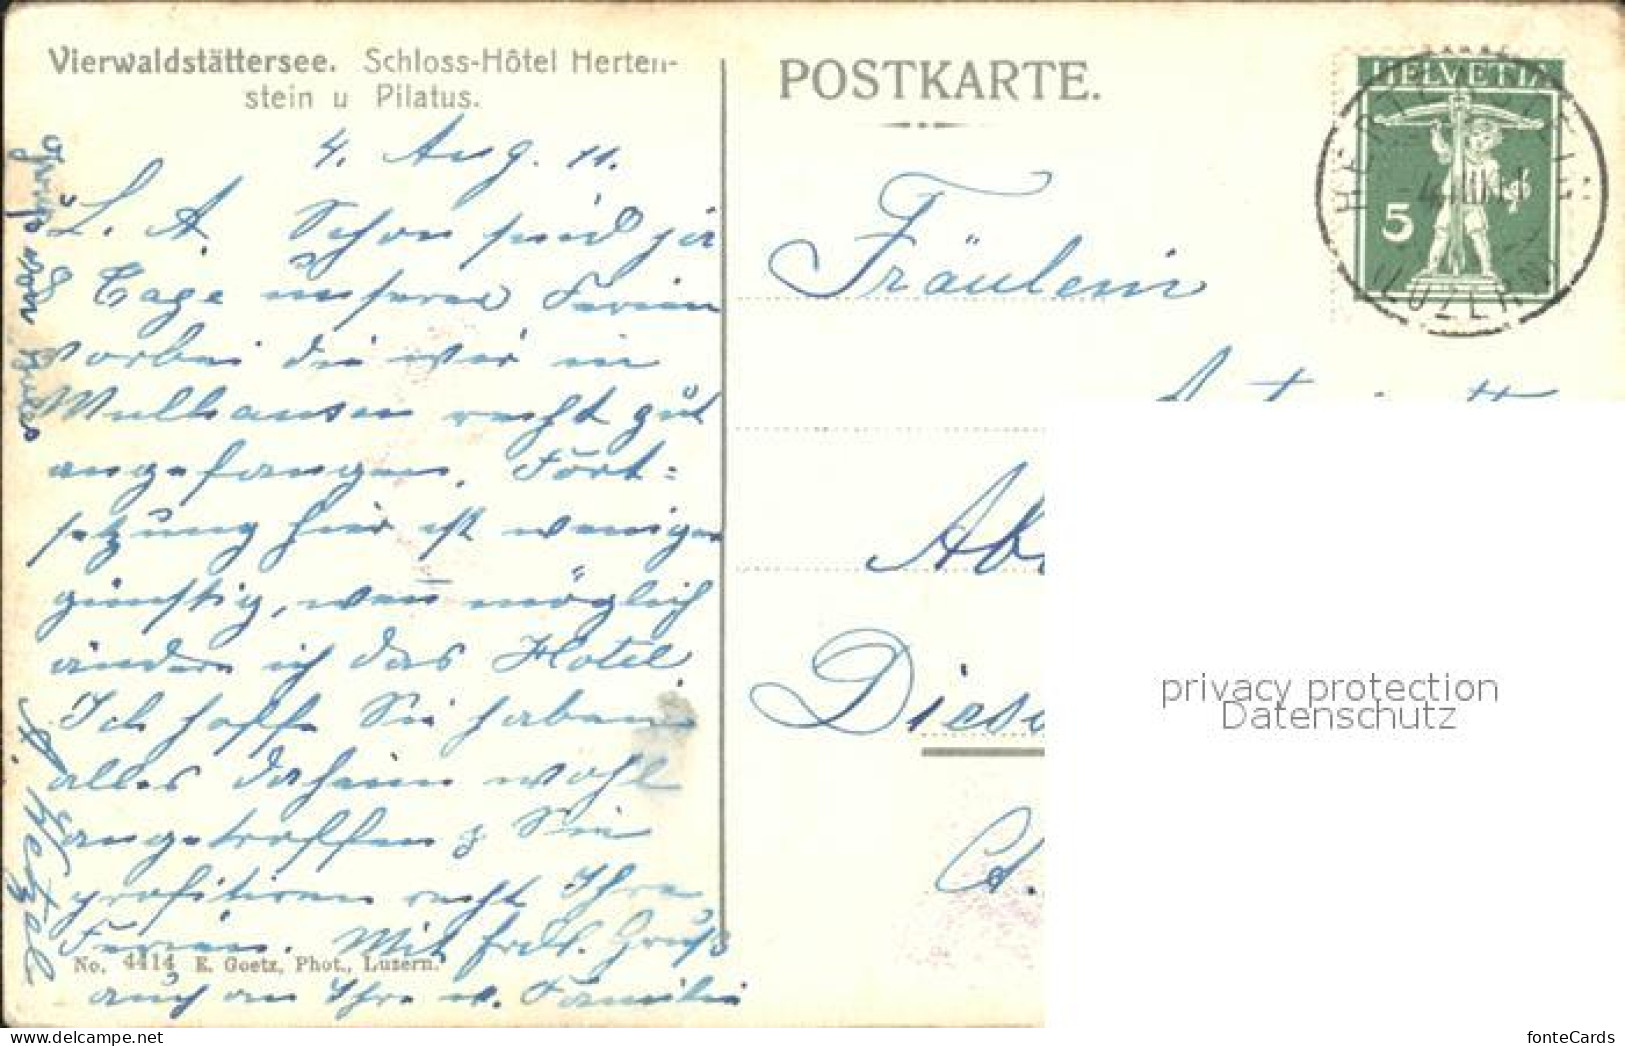 Vierwaldstättersee. Schloss-Hôtel Herten-
stein u Pilatus.
4. Aug. 11.
L. A. Schon sind ja
8 Tage unserer Ferien
vorbei die wir in
Mullhausen recht gut
angefangen. Fort-
setzung hier ist weniger
günstig, wenn möglich
ändere ich das Hotel.
Ich hoffe Sie haben
alles daheim wohl
angetroffen & Sie
profitiren recht Ihre
Ferien. Mit frdl. Gruß
auch an Ihre w. Familie
A. Wetzel
No. 4414 E. Goetz, Phot., Luzern.
POSTKARTE.
HELVETIA
5
HERTENSTEIN
-4.VIII.11
(LUZERN)
Fräulein
Ab
Diesd
Ct.
privacy protection
Datenschutz
fonteCards
delcampe.net